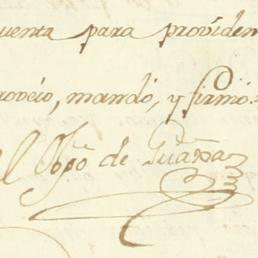 uenta para providen
roveió, mandó, y firmó.
el Obpõ de Guáða